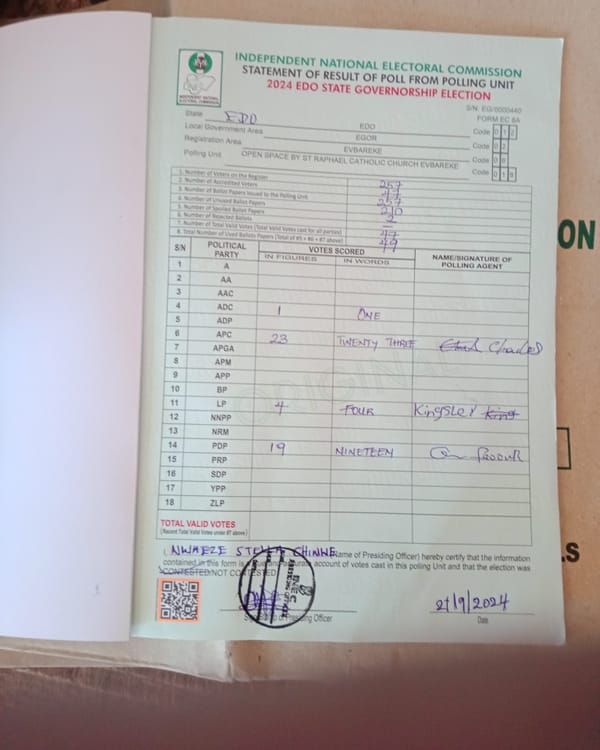 INDEPENDENT NATIONAL ELECTORAL COMMISSION
STATEMENT OF RESULT OF POLL FROM POLLING UNIT
2024 EDO STATE GOVERNORSHIP ELECTION
S/N: EG/0000440
FORM EC 8A
State EDO EDO Code 0 1 2
Local Government Area EGOR Code 0 2
Registration Area EVBAREKE Code 0
Polling Unit OPEN SPACE BY ST RAPHAEL CATHOLIC CHURCH EVBAREKE Code 0 1
1. Number of Voters on the Register 257
2. Number of Accredited Voters 47
3. Number of Ballot Papers Issued to the Polling Unit 257
4. Number of Unused Ballot Papers 210
5. Number of Spoiled Ballot Papers 2
6. Number of Rejected Ballots
7. Number of Total Valid Votes (Total Valid Votes cast for all parties) 47
8. Total Number of Used Ballots Papers (Total of #5 + #6 + #7 above) 49
S/N POLITICAL PARTY VOTES SCORED NAME/SIGNATURE OF POLLING AGENT
IN FIGURES IN WORDS
1 A
2 AA
3 AAC
4 ADC 1 ONE
5 ADP
6 APC 23 TWENTY THREE Charles
7 APGA
8 APM
9 APP
10 BP
11 LP 4 FOUR Kingsley
12 NNPP
13 NRM
14 PDP 19 NINETEEN
15 PRP
16 SDP
17 YPP
18 ZLP
TOTAL VALID VOTES
I, NWAEZE STELLA CHINWE (Name of Presiding Officer) hereby certify that the information
contained in this form is a true and accurate account of votes cast in this polling Unit and that the election was
CONTESTED/NOT CONTESTED
INEC
Signature of Presiding Officer
21/9/2024
Date
ON
.S